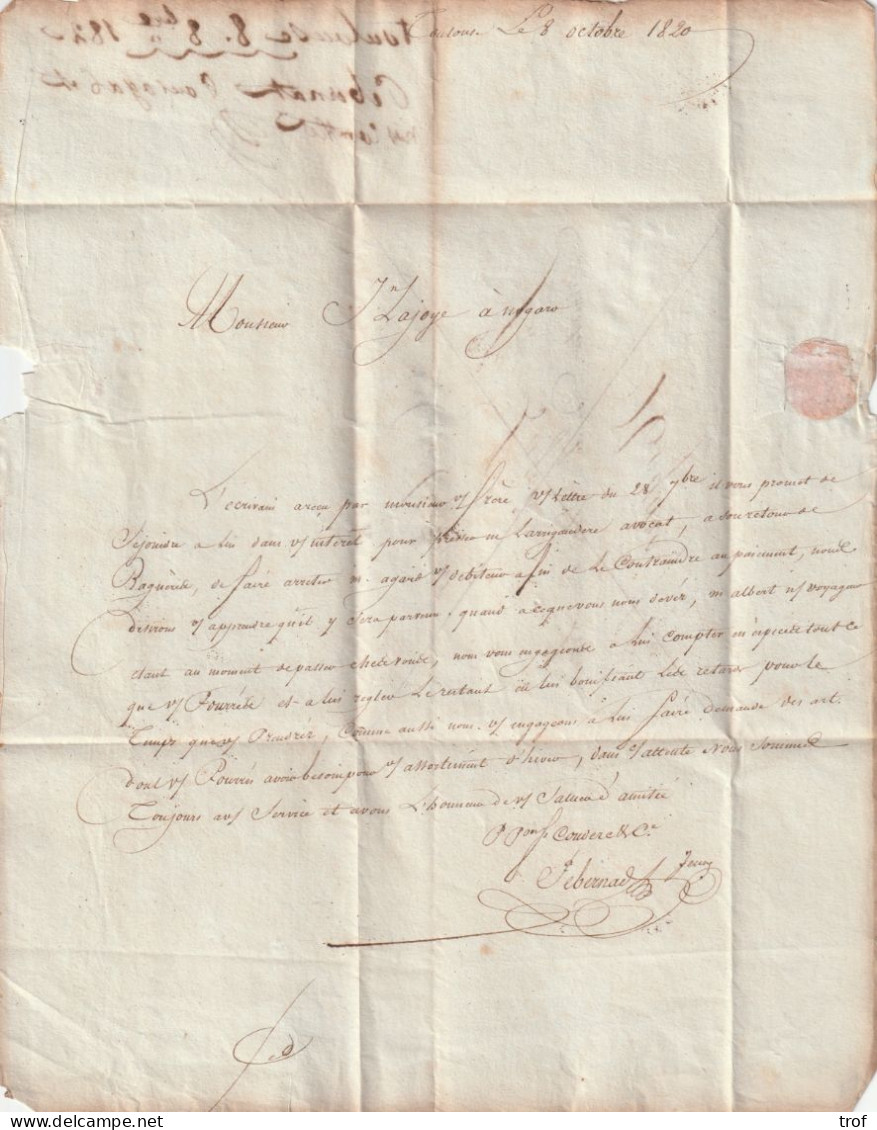 Toulouse Le 8 octobre 1820
Monsieur Jn Lajoye à nogaro
L'ecrivain a reçu par monsieur v/ frère v/ Lettre du 28 7bre il vous promet de
Se joindre a lui dans v/ interet pour m Larrigaudere avocat, a son retour de
Bagnères, de faire arreter m. v/ debiteur afin de Le Contraindre au paiement, nous
desirons v/ apprendre qu'il y Sera parvenu. quand a ce que vous nous devez, m albert n/ voyageur
etant au moment de passer chez vous, nous vous engageons a lui compter en especes tout ce
que v/ Pourrés et a lui regler Le restant en lui bonifiant Le de retard pour le
Temps que v/ Prendrez, Comme aussi nous v/ engageons a lui faire demande des art.
dont v/ Pourrés avoir besoin pour v/ assortiment d'hiver, dans v/ attente Nous Sommes
Toujours a v/ Service et avons L'honneur de v/ Saluer d'amitié
P Pons Couderc & Ce
Pébernad Jeune